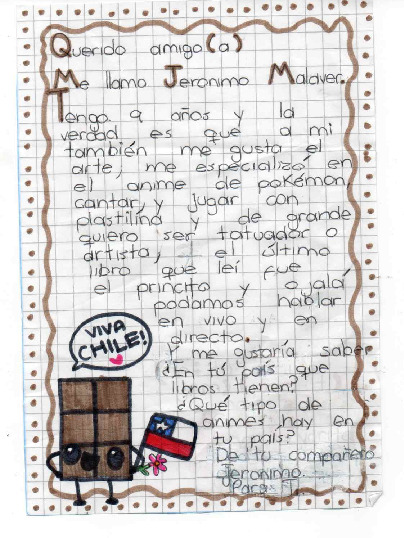 Querido amigo(a)
Me llamo Jeronimo Malaver.
Tengo 9 años y la
verdad es que a mi
también me gusta el
arte, me especializó en
el anime de pokémon,
cantar, y jugar con
plastilina y de grande
quiero ser tatuador o
artista, el último
libro que leí fue
el princito y ojalá
podamos hablar
en vivo y en
directo.
Y me gustaría saber
¿En tú país que
libros tienen?
¿Qué tipo de
animes hay en
tu país?
De tu compañero
Jeronimo.
Para: T.
VIVA
CHILE!